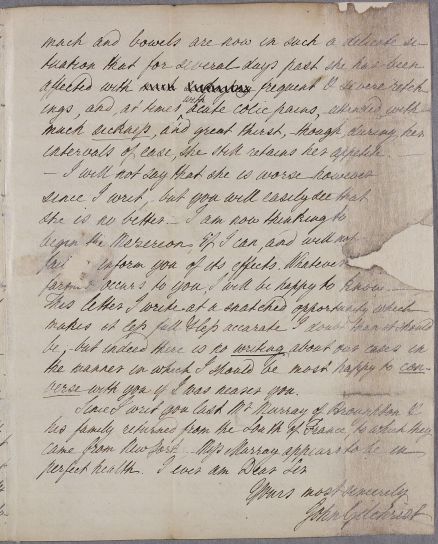 mach and bowels are now in such a delicate si-
tuation that for several days past she has been
affected with frequent & severe retch
ings, and, at times with acute colic pains, attended with
much sickness, and great thirst, though during her
intervals of ease, she still retains her appetite
— I will not say that she is worse however
since I writ, but you will easily see that
she is no better — I am now thinking to
begin the Mezereon, if I can, and will not
fail inform you of its effects. Whatever
farther occurs to you I will be happy to know —
This letter I write at a snatched opportunity which
makes it less full & less accurate I doubt than it should
be, but indeed there is no writing about our cases in
the manner in which I should be most happy to con-
verse with you if I was nearer you.
Since I writ you last Mr Murray of Broughton &
his family returned from the South of France, to which they
came from New York. Miss Murray appears to be in
perfect health. I ever am Dear Sir
Yours most sincerely
John Gilchrist